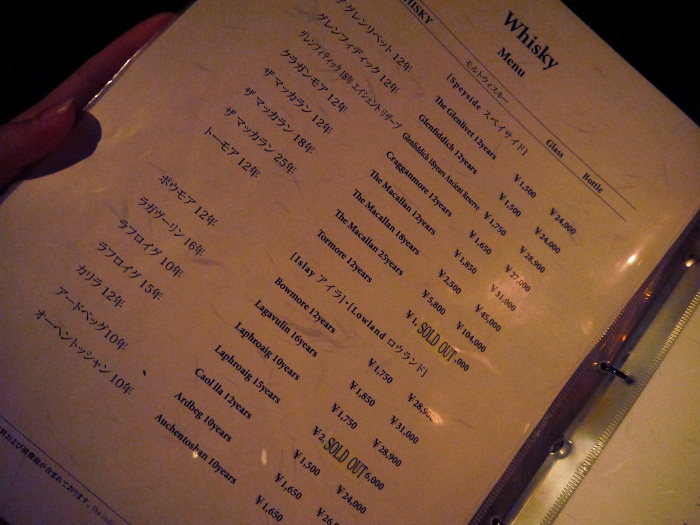 Whisky
Menu
HISKY モルトウィスキー Glass Bottle
[Speyside スペイサイド]
ザ グレンリベット 12年 The Glenlivet 12years ¥1,500 ¥24,000
グレンフィディック 12年 Glenfiddich 12years ¥1,500 ¥24,000
グレンフィディック 18年 エイシェントリザーブ Glenfiddich 18years Ancient Reserve ¥1,750 ¥28,900
クラガンモア 12年 Cragganmore 12years ¥1,650 ¥27,000
ザ マッカラン 12年 The Macallan 12years ¥1,850 ¥31,000
ザ マッカラン 18年 The Macallan 18years ¥2,500 ¥45,000
ザ マッカラン 25年 The Macallan 25years ¥5,800 ¥104,000
トーモア 12年 Tormore 12years ¥1, SOLD OUT ,000
[Islay アイラ]・[Lowland ロウランド]
ボウモア 12年 Bowmore 12years ¥1,750 ¥28,900
ラガヴーリン 16年 Lagavulin 16years ¥1,850 ¥31,000
ラフロイグ 10年 Laphroaig 10years ¥1,750 ¥28,900
ラフロイグ 15年 Laphroaig 15years ¥2, SOLD OUT 6,000
カリラ 12年 Caol Ila 12years ¥1,500 ¥24,000
アードベッグ10年 Ardbeg 10years ¥1,650
オーヘントッシャン 10年 Auchentoshan 10years ¥1,650
料および消費税が含まれております。